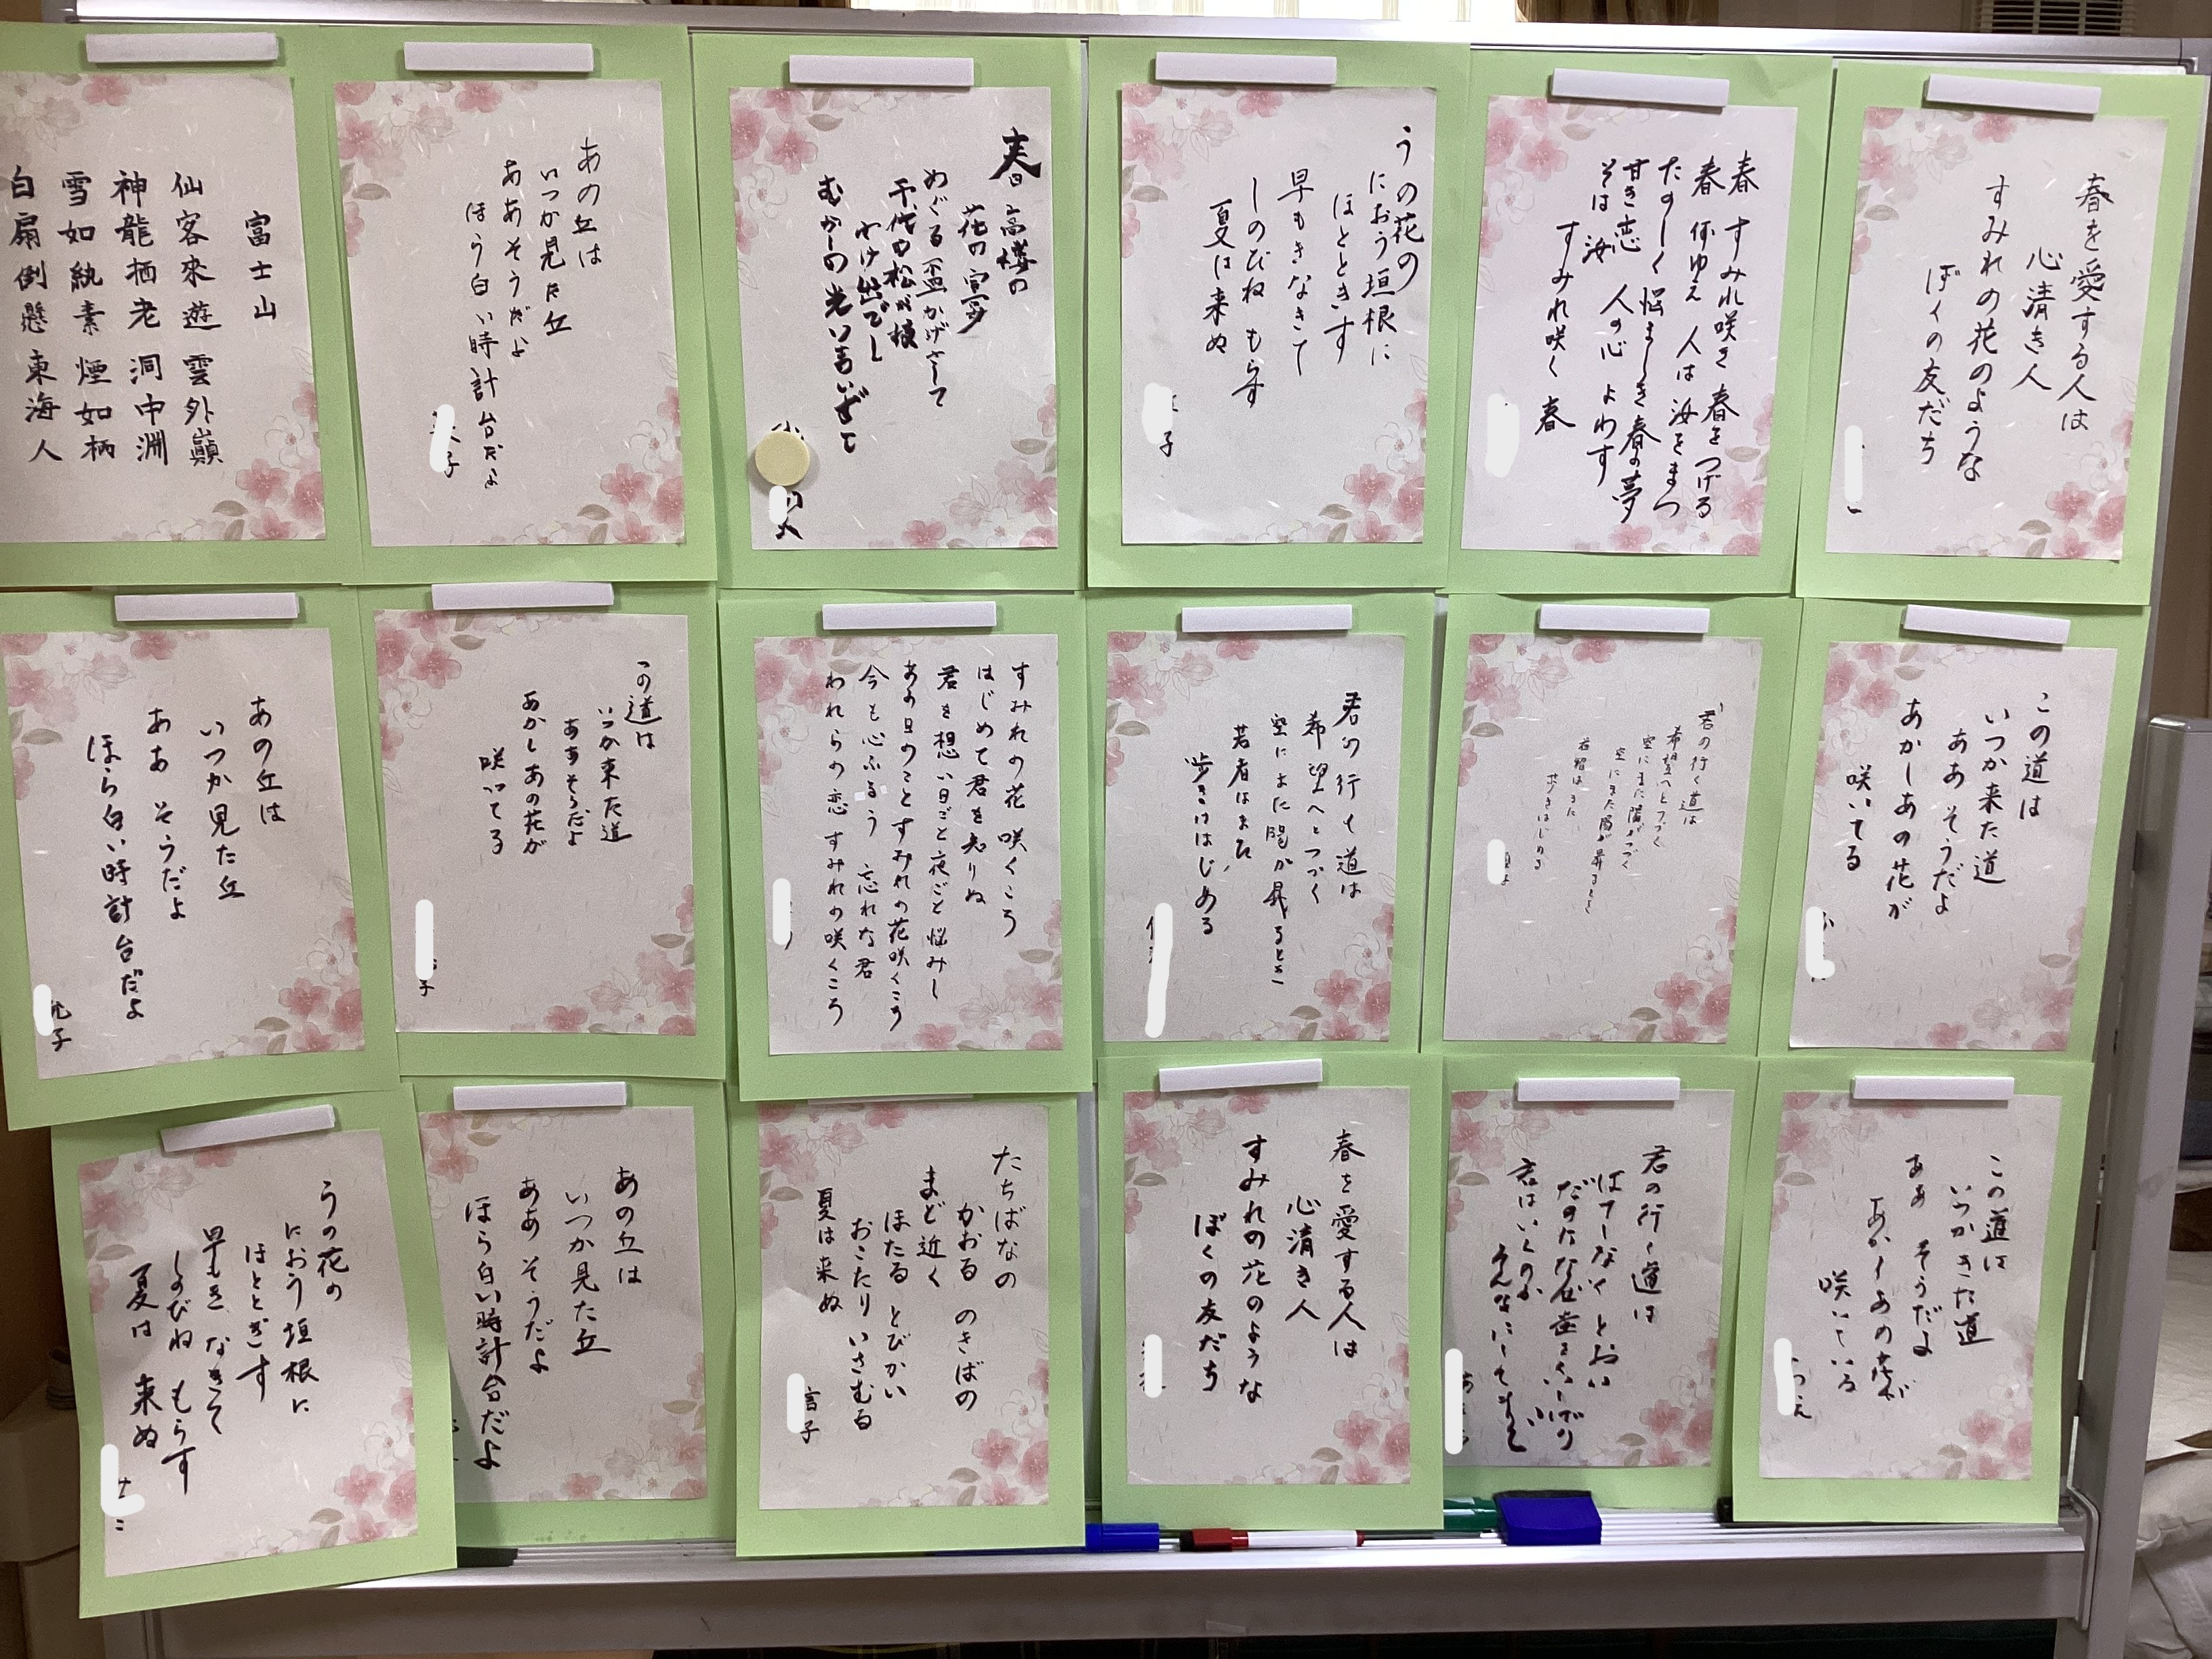 春を愛する人は
心清き人
すみれの花のような
ぼくの友だち
春 すみれ咲き 春をつげる
春 何ゆえ 人は汝をまつ
たのしく悩ましき春の夢
甘き恋 人の心 よわす
そは汝 すみれ咲く 春
うの花の
におう垣根に
ほととぎす
早もきなきて
しのびね もらす
夏は来ぬ
春 高楼の
花の宴
めぐる盃かげさして
千代の松が枝
わけ出でし
むかしの光いまいずこ
あの丘は
いつか見た丘
ああそうだよ
ほら白い時計台だよ
子
富士山
仙客來遊雲外巓
神龍栖老洞中淵
雪如紈素煙如柄
白扇倒懸東海人
この道は
いつか来た道
ああ そうだよ
あかしあの花が
咲いてる
君の行く道は
希望へとつづく
空にまた陽がつづく
空にまた陽が昇るとき
若者はまた
歩きはじめる
君の行く道は
希望へとつづく
空にまた陽が昇るとき
若者はまた
歩きはじめる
すみれの花 咲くころ
はじめて君を知りぬ
君を想い日ごと夜ごと悩みし
あの日のことすみれの花咲くころ
今も心ふるう 忘れな君
われらの恋 すみれの咲くころ
この道は
いつか来た道
ああそうだよ
あかしあの花が
咲いてる
子
あの丘は
いつか見た丘
ああ そうだよ
ほら白い時計台だよ
子
この道は
いつかきた道
ああ そうだよ
あかしあの花が
咲いている
君の行く道は
はてしなく とおい
だのになぜ歯をくいしばり
君はいくのか
そんなにしてまで
春を愛する人は
心清き人
すみれの花のような
ぼくの友だち
たちばなの
かおる のきばの
まど近く
ほたる とびかい
おこたり いさむる
夏は来ぬ
子
あの丘は
いつか見た丘
ああ そうだよ
ほら白い時計台だよ
うの花の
におう垣根に
ほととぎす
早もき なきて
しのびね もらす
夏は 来ぬ